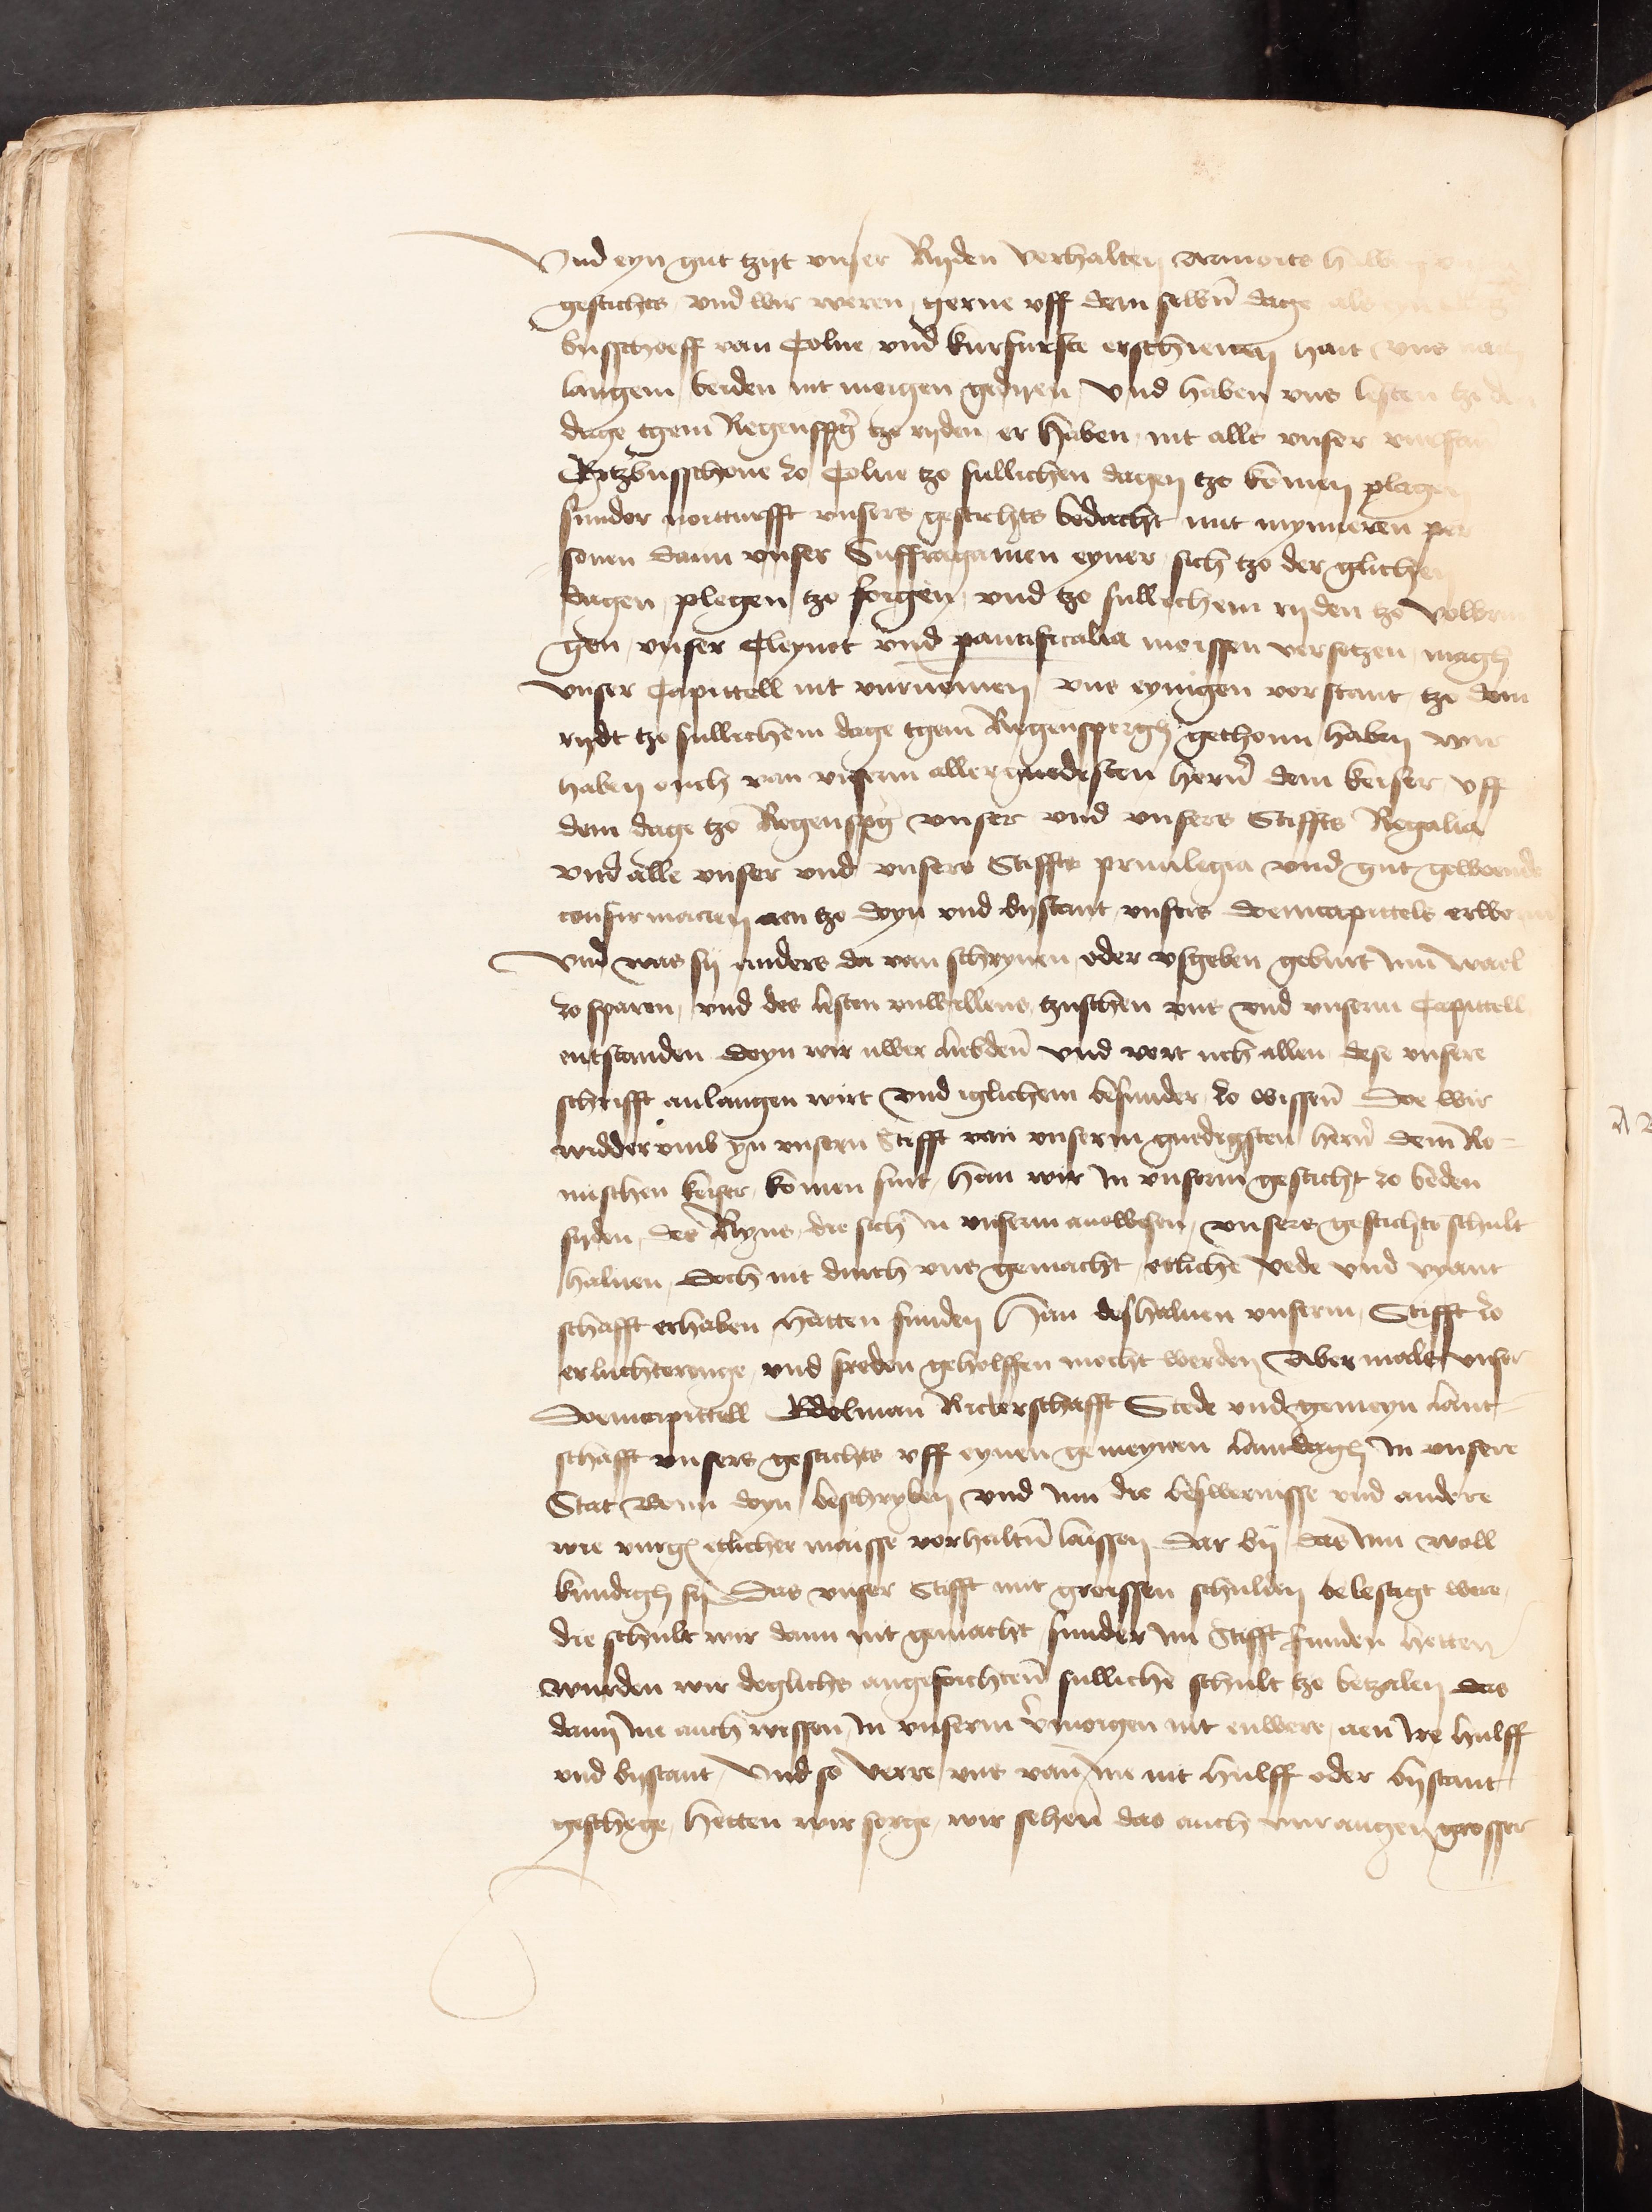 Vnd eyn gut tzijt vnser Rijden verhalten armoits
gestichts vnd wir weren gerne vff dem seluen dage als
busschoeff van Colne vnd kurfurste erschienen hait vns
langem beiden nit moigen gedijen Vnd haben vns lesten tzo dem
dage tgein Regenspg tzo rijden er haben nit alle vnser
Ertzbusschoue zo Colne tzo sullichen dagen tzo komen plegen
sunder nottrufft vnsers gestichts bedacht mit mynneren per
sonen dann vnser Suffraganien eyner sich tzo der glichen
dagen plegen tzo foegen vnd tzo sullichem rijden tzo
gen vnser Cleynot vnd pantificalia moissen versetzen magh
vnser Capittell nit vurnemen vns eynigen vorstant tzo dem
rijdt tzo sullichem dage tgein Regenspergh gethonn haben wir
haben ouch van vnserm allergnedesten hern dem keiser vff
dem dage tzo Regenspg vnser vnd vnsers Stiffts Regalia
vnd alle vnser vnd vnsers Stiffts priuilegia vnd gut gewoende
confirmacien aen tzo doyn vnd bijstant vnsers doemcapittels
Vnd was sij anders da van schryuen oder vsgeben geburt nun wael
zo sparen vnd des lesten vnwillens tzuschen vns vnd vnserm Capittell
entstanden doyn wir uwer liebden vnd vort uch allen dese vnsere
schrifft anlangen wirt vnd iglichem besunder zo wissen Doe wir
widder vmb yn vnsern Stifft van vnserm gnedigsten hern dem Ro-
mischen keiser komen sint han wir in vnserm gesticht zo beden
syden des Ryns die sich in vnserm auswesen vnsers gestichts schult
haluen doch nit durch vns gemacht etliche vede vnd vyant
schafft erhaben hatten funden Han deshaluen vnserm Stifft zo
erluchteronge vnd freden geholffen mocht werden Aber mals vnser
Doemcapittell Edelman Ritterschafft Stede vnd gemeyn lant-
schafft vnsers gestichts vff eynen gemeynen lantdagh in vnsere
Stat Bonn doyn beschryben vnd inn die beswernisse vnd andere
wie vurg etlicher maisse vorhalten laissen Dar bij das inn woll
kundigh sij Das vnser Stifft mit groissen schulden belestigt were
die schult wir dann nit gemacht sunder im Stifft funden hetten
wurden wir deglichs angefochten sulliche schult tzo betzalen das
dann nie auch wissen in vnserm vermoigen nit enwere aen ire hulff
vnd bijstant Vnd so verre vns van inn nit hulff oder bijstant
geschege hetten wir sorge wir sehen das auch vur augen grosser